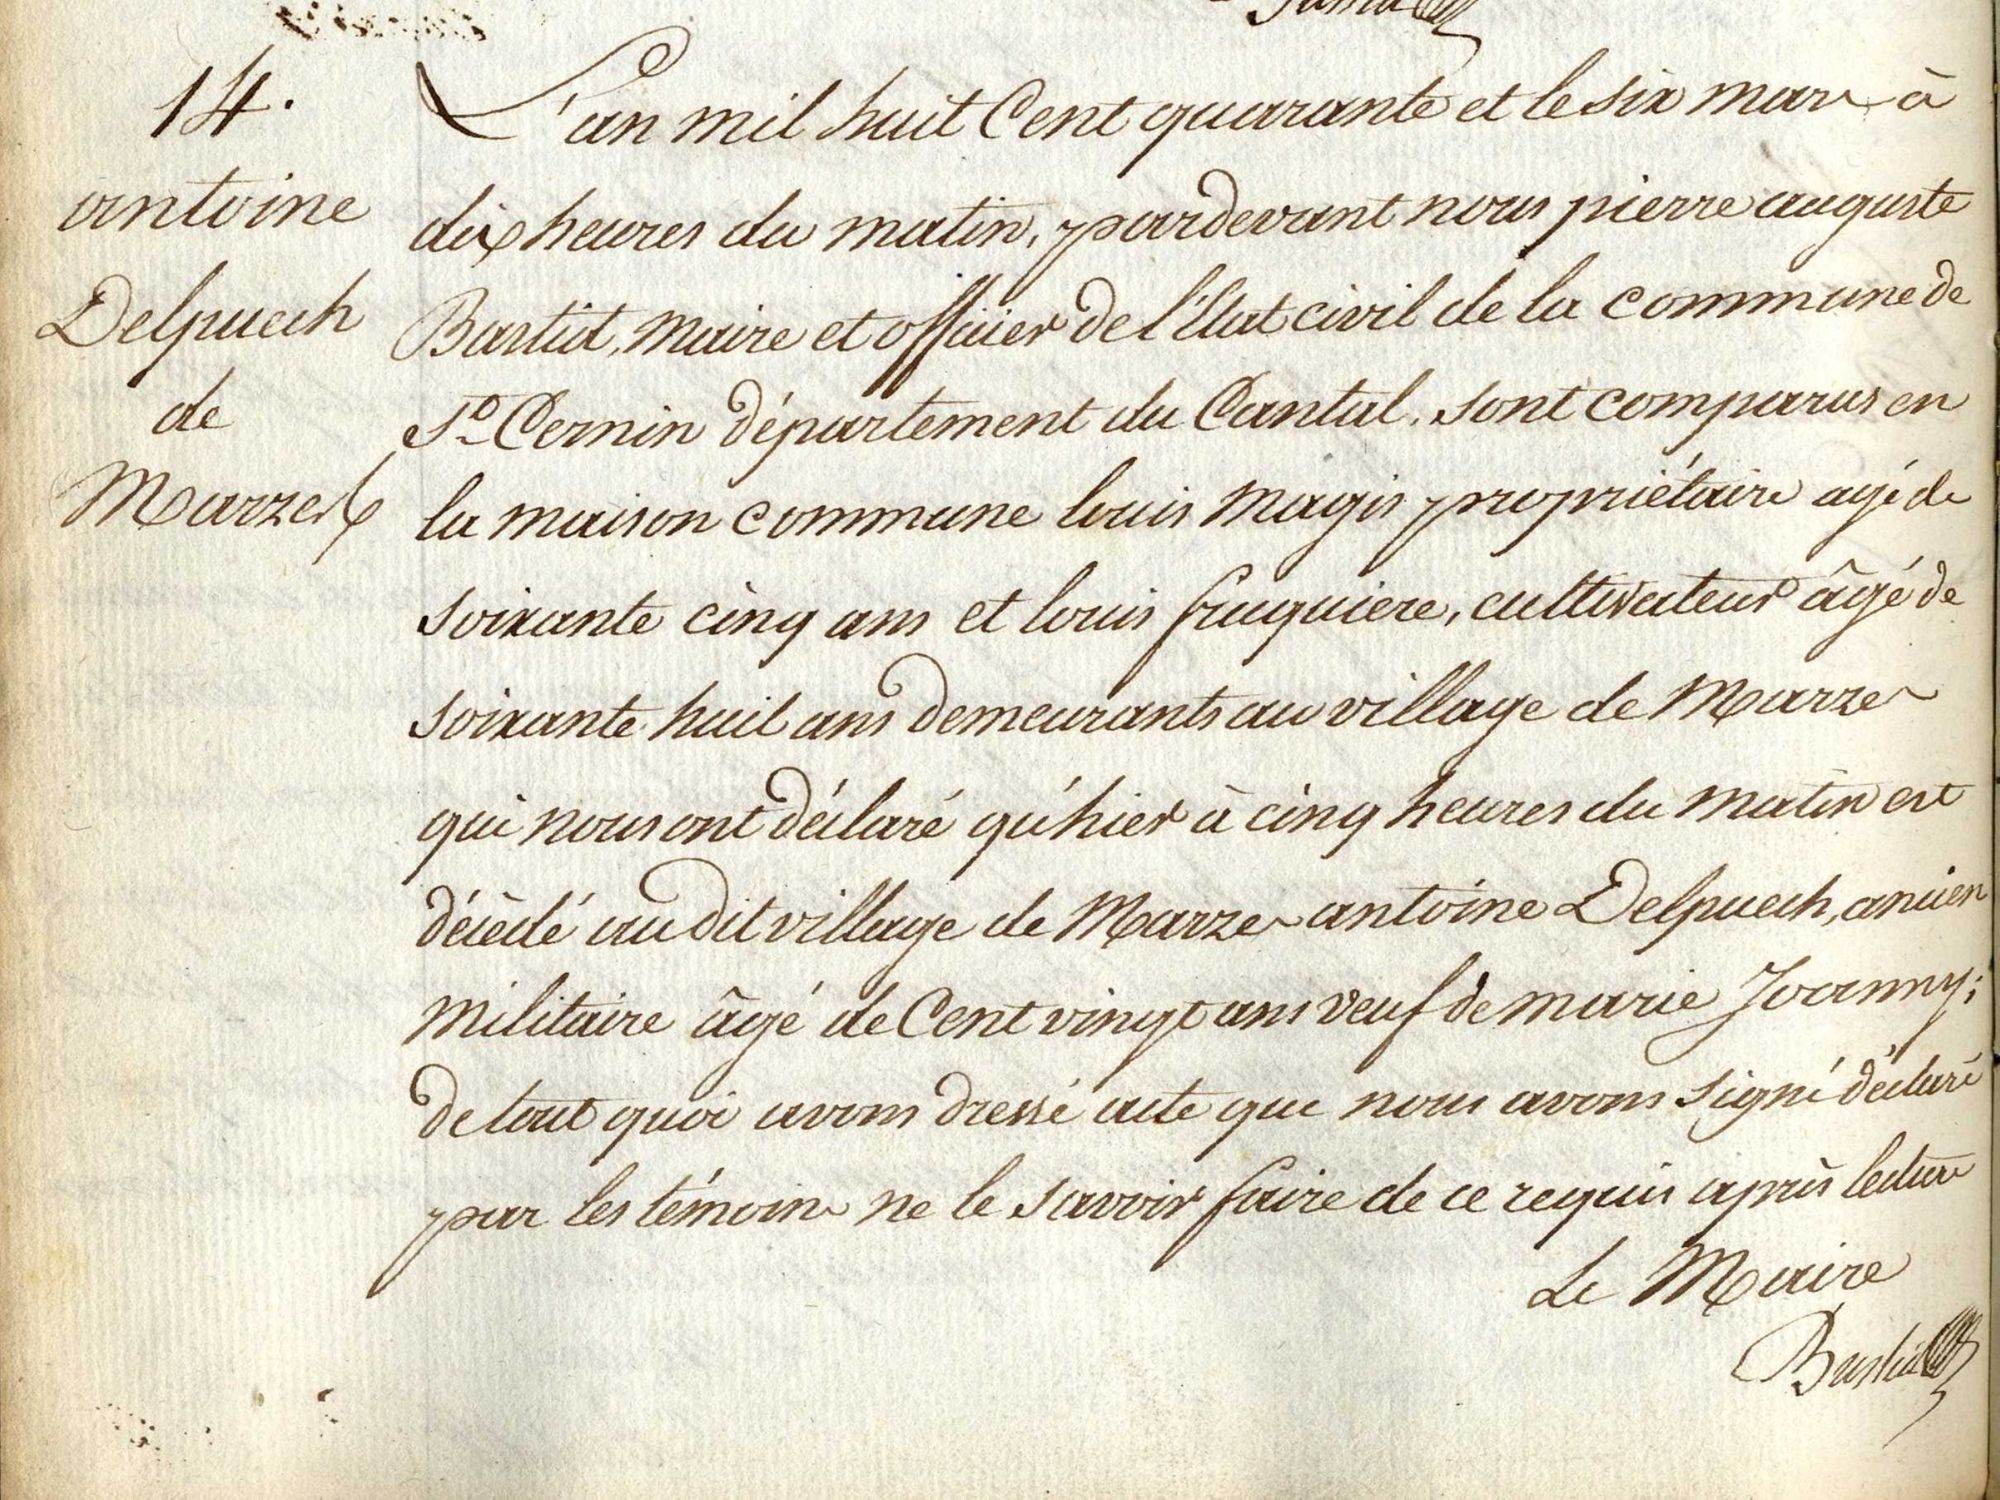 14.
antoine
Delpuech
de
Marzes
L'an mil huit Cent quarante et le six mars à
dix heures du matin, pardevant nous pierre auguste
Bastid, Maire et officier de l'Etat civil de la commune de
St. Cernin département du Cantal. sont comparus en
la maison commune louis Magis propriétaire agé de
soixante cinq ans et louis fruquiere, cultivateur âgé de
soixante huit ans demeurants au village de Marzes
qui nous ont déclaré qu'hier à cinq heures du matin est
décèdé au dit village de Marzes antoine Delpuech, ancien
militaire âgé de Cent vingt ans veuf de marie Joanny;
de tout quoi avons dressé acte que nous avons signé déclaré
par les témoins ne le savoir faire de ce requis après lecture
Le Maire
Bastid